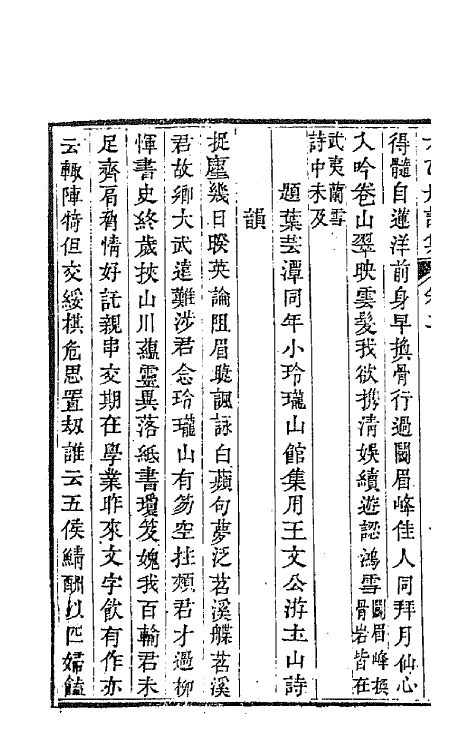 得髓自蓬洋前身早換骨行過鬭眉峰佳人同拜月仙心
入吟卷山翠映雲髮我欲携清娛續遊認鴻雪鬭眉峰換骨岩皆在
武夷蘭雪詩中未及
題葉芸潭同年小玲瓏山館集用王文公游土山詩
韻
捉麈幾日暌英論阻眉睫諷詠白蘋句夢泛苕溪艓苕溪
君故鄉大武遠難涉君念玲瓏山有笏空拄頰君才過柳
惲書史終歲挾山川蘊靈異落紙書瓊笈媿我百輸君未
足齊鬲胾情好託親串交期在學業昨來文字飲有作亦
云輙陣犄但交綏棋危思置刼誰云五侯鯖酬以匹婦饁